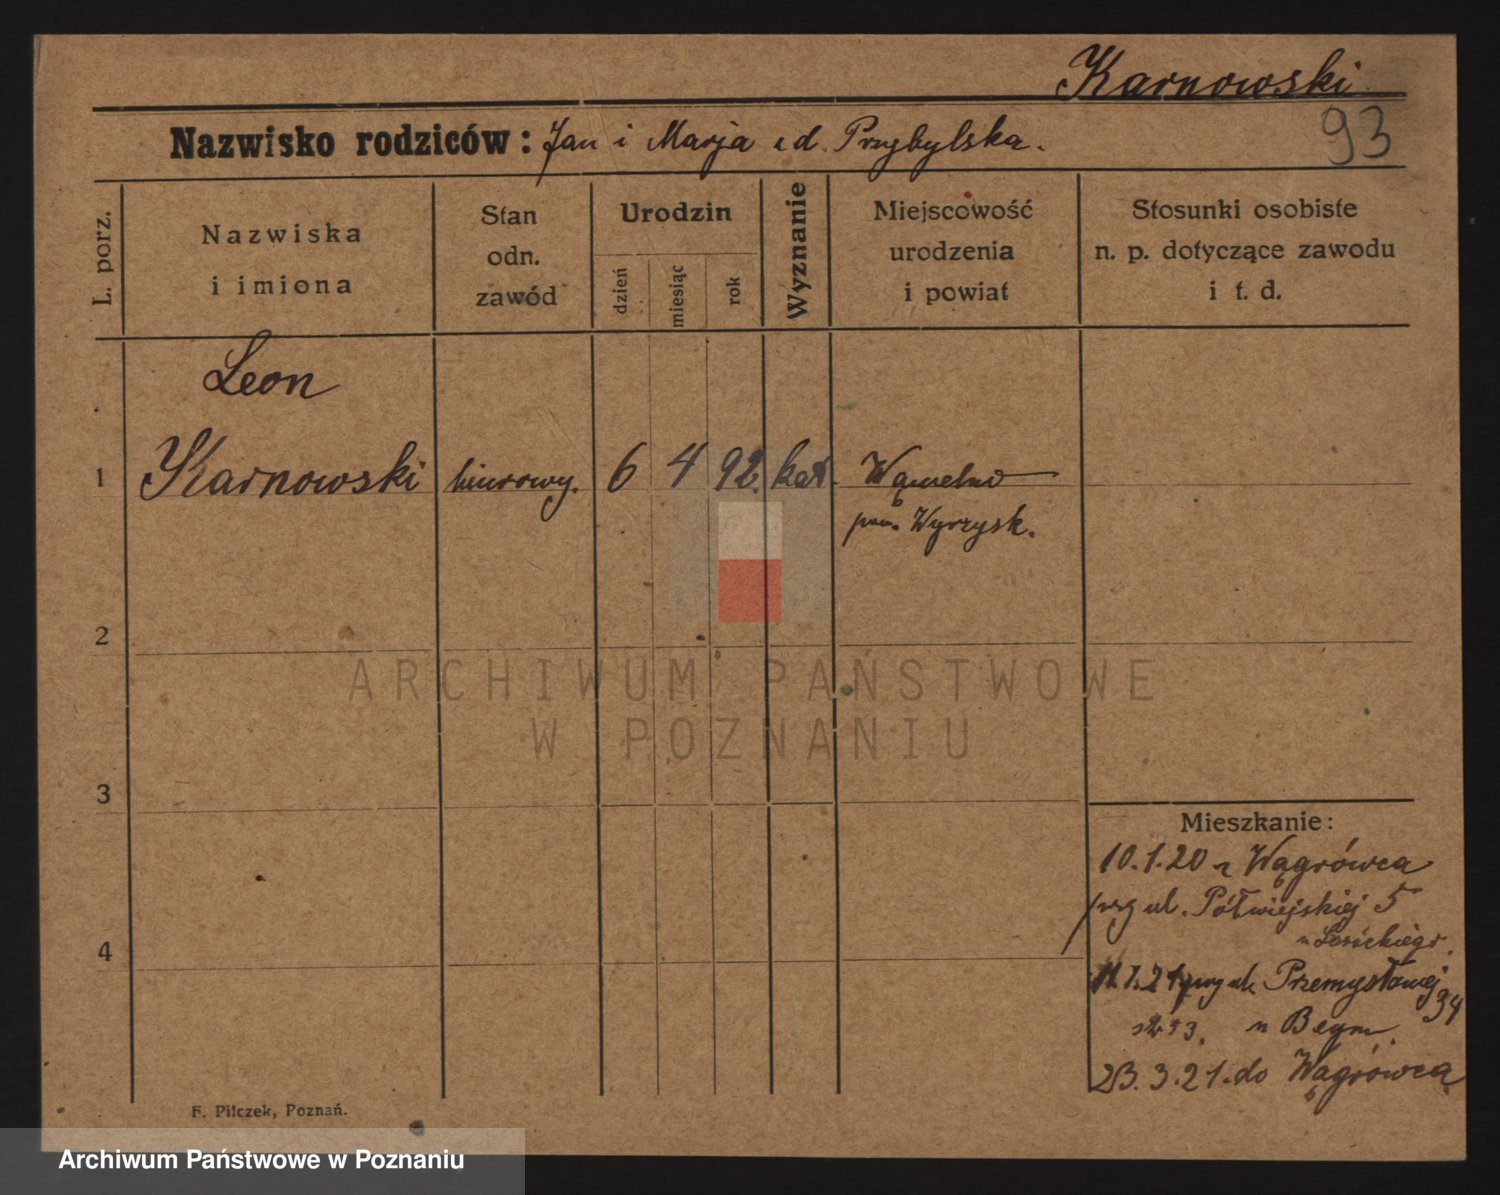 Karnowski
93
Nazwisko rodziców: Jan i Marja z d. Przybylska.
L. porz.
Nazwiska
i imiona
Stan
odn.
zawód
Urodzin
dzień
miesiąc
rok
Wyznanie
Miejscowość
urodzenia
i powiat
Stosunki osobiste
n. p. dotyczące zawodu
i t. d.
Leon
1 Karnowski biurowy. 6 4 92. kat. Wąwelno
pow. Wyrzysk.
2
3
4
ARCHIWUM PAŃSTWOWE
W POZNANIU
Mieszkanie:
10.1.20 z Wągrówca
przy ul. Półwiejskiej 5
u Lesickiego.
przy ul. Przemysłowej 34
u Beym.
23.3.21. do Wągrówca
F. Pilczek, Poznań.
Archiwum Państwowe w Poznaniu